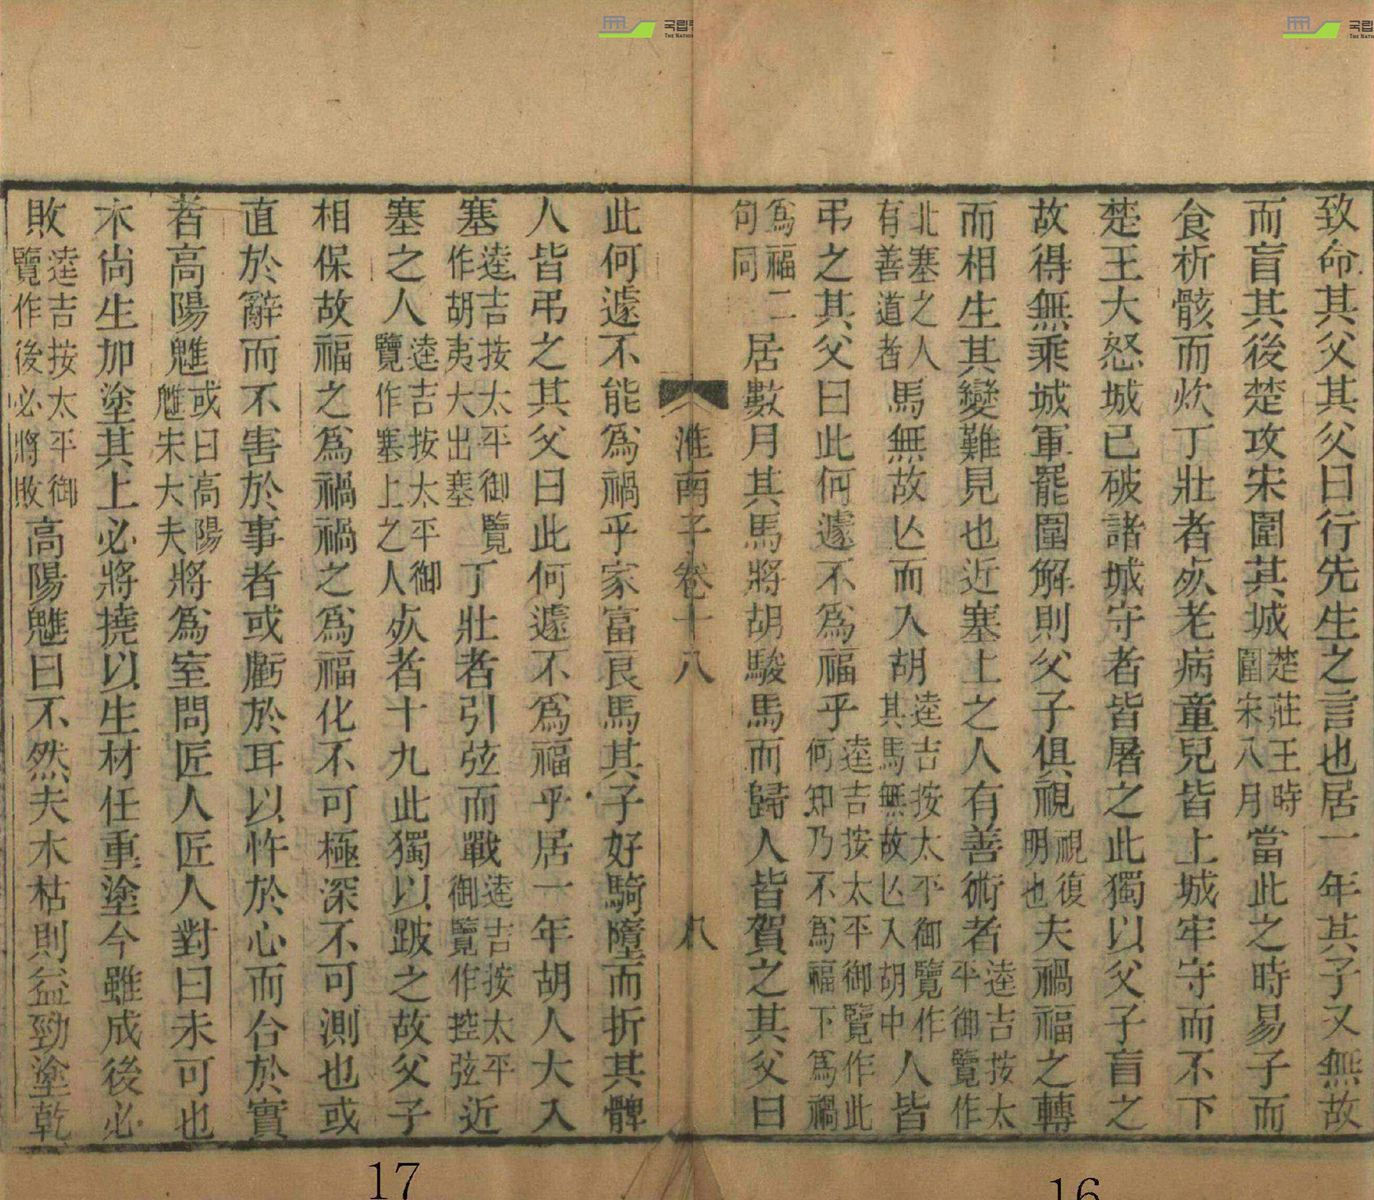 致命其父其父曰行先生之言也居一年其子又無故
而盲其後楚攻宋圍其城楚莊王時圍宋八月當此之時易子而
食析骸而炊丁壯者死老病童兒皆上城牢守而不下
楚王大怒城已破諸城守者皆屠之此獨以父子盲之
故得無乘城軍罷圍解則父子俱視視復明也夫禍福之轉
而相生其變難見也近塞上之人有善術者逵吉按太平御覽作
北塞之人有善道者馬無故亾而入胡逵吉按太平御覽作其馬無故亾入胡中人皆
弔之其父曰此何遽不爲福乎逵吉按太平御覽作此何知乃不爲福下爲禍
爲福二句同居數月其馬將胡駿馬而歸人皆賀之其父曰
淮南子卷十八 八
此何遽不能爲禍乎家富良馬其子好騎墮而折其髀
人皆弔之其父曰此何遽不爲福乎居一年胡人大入
塞逵吉按太平御覽作胡夷大出塞丁壯者引弦而戰逵吉按太平御覽作控弦近
塞之人逵吉按太平御覽作塞上之人死者十九此獨以跛之故父子
相保故福之爲禍禍之爲福化不可極深不可測也或
直於辭而不害於事者或虧於耳以忤於心而合於實
者高陽魋或曰高陽魋宋大夫將爲室問匠人匠人對曰未可也
木尙生加塗其上必將撓以生材任重塗今雖成後必
敗逵吉按太平御覽作後必將敗高陽魋曰不然夫木枯則益勁塗乾
17
16
국립
THE NATI
국립
THE NATI